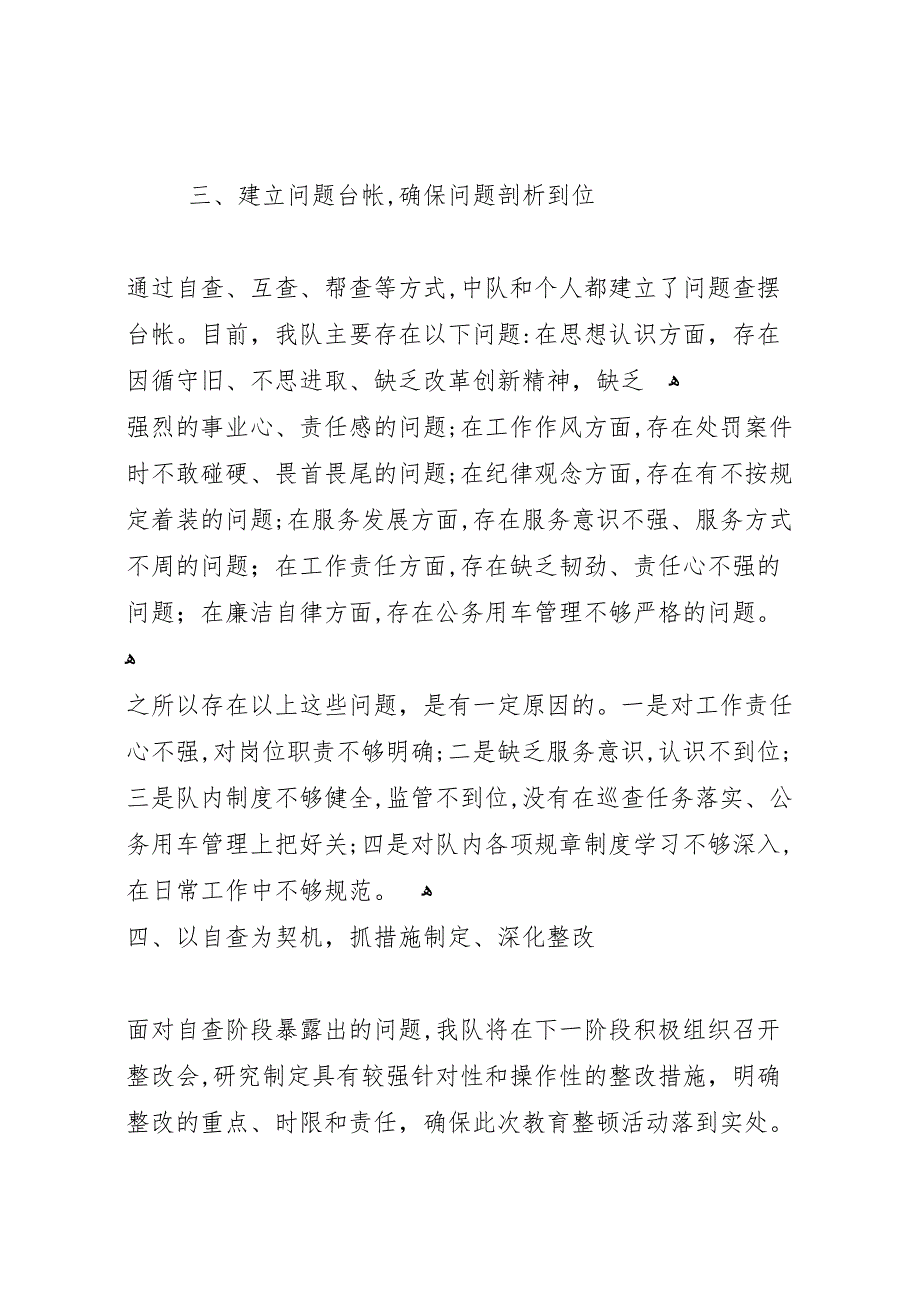 三、建立问题台帐,确保问题剖析到位
通过自查、互查、帮查等方式,中队和个人都建立了问题查摆
台帐。目前，我队主要存在以下问题:在思想认识方面，存在
因循守旧、不思进取、缺乏改革创新精神，缺乏 ﻫ
强烈的事业心、责任感的问题;在工作作风方面,存在处罚案件
时不敢碰硬、畏首畏尾的问题;在纪律观念方面,存在有不按规
定着装的问题;在服务发展方面,存在服务意识不强、服务方式
不周的问题；在工作责任方面,存在缺乏韧劲、责任心不强的
问题；在廉洁自律方面,存在公务用车管理不够严格的问题。
ﻫ
之所以存在以上这些问题，是有一定原因的。一是对工作责任
心不强,对岗位职责不够明确;二是缺乏服务意识,认识不到位;
三是队内制度不够健全,监管不到位,没有在巡查任务落实、公
务用车管理上把好关;四是对队内各项规章制度学习不够深入,
在日常工作中不够规范。 ﻫ
四、以自查为契机，抓措施制定、深化整改
面对自查阶段暴露出的问题,我队将在下一阶段积极组织召开
整改会,研究制定具有较强针对性和操作性的整改措施，明确
整改的重点、时限和责任，确保此次教育整顿活动落到实处。